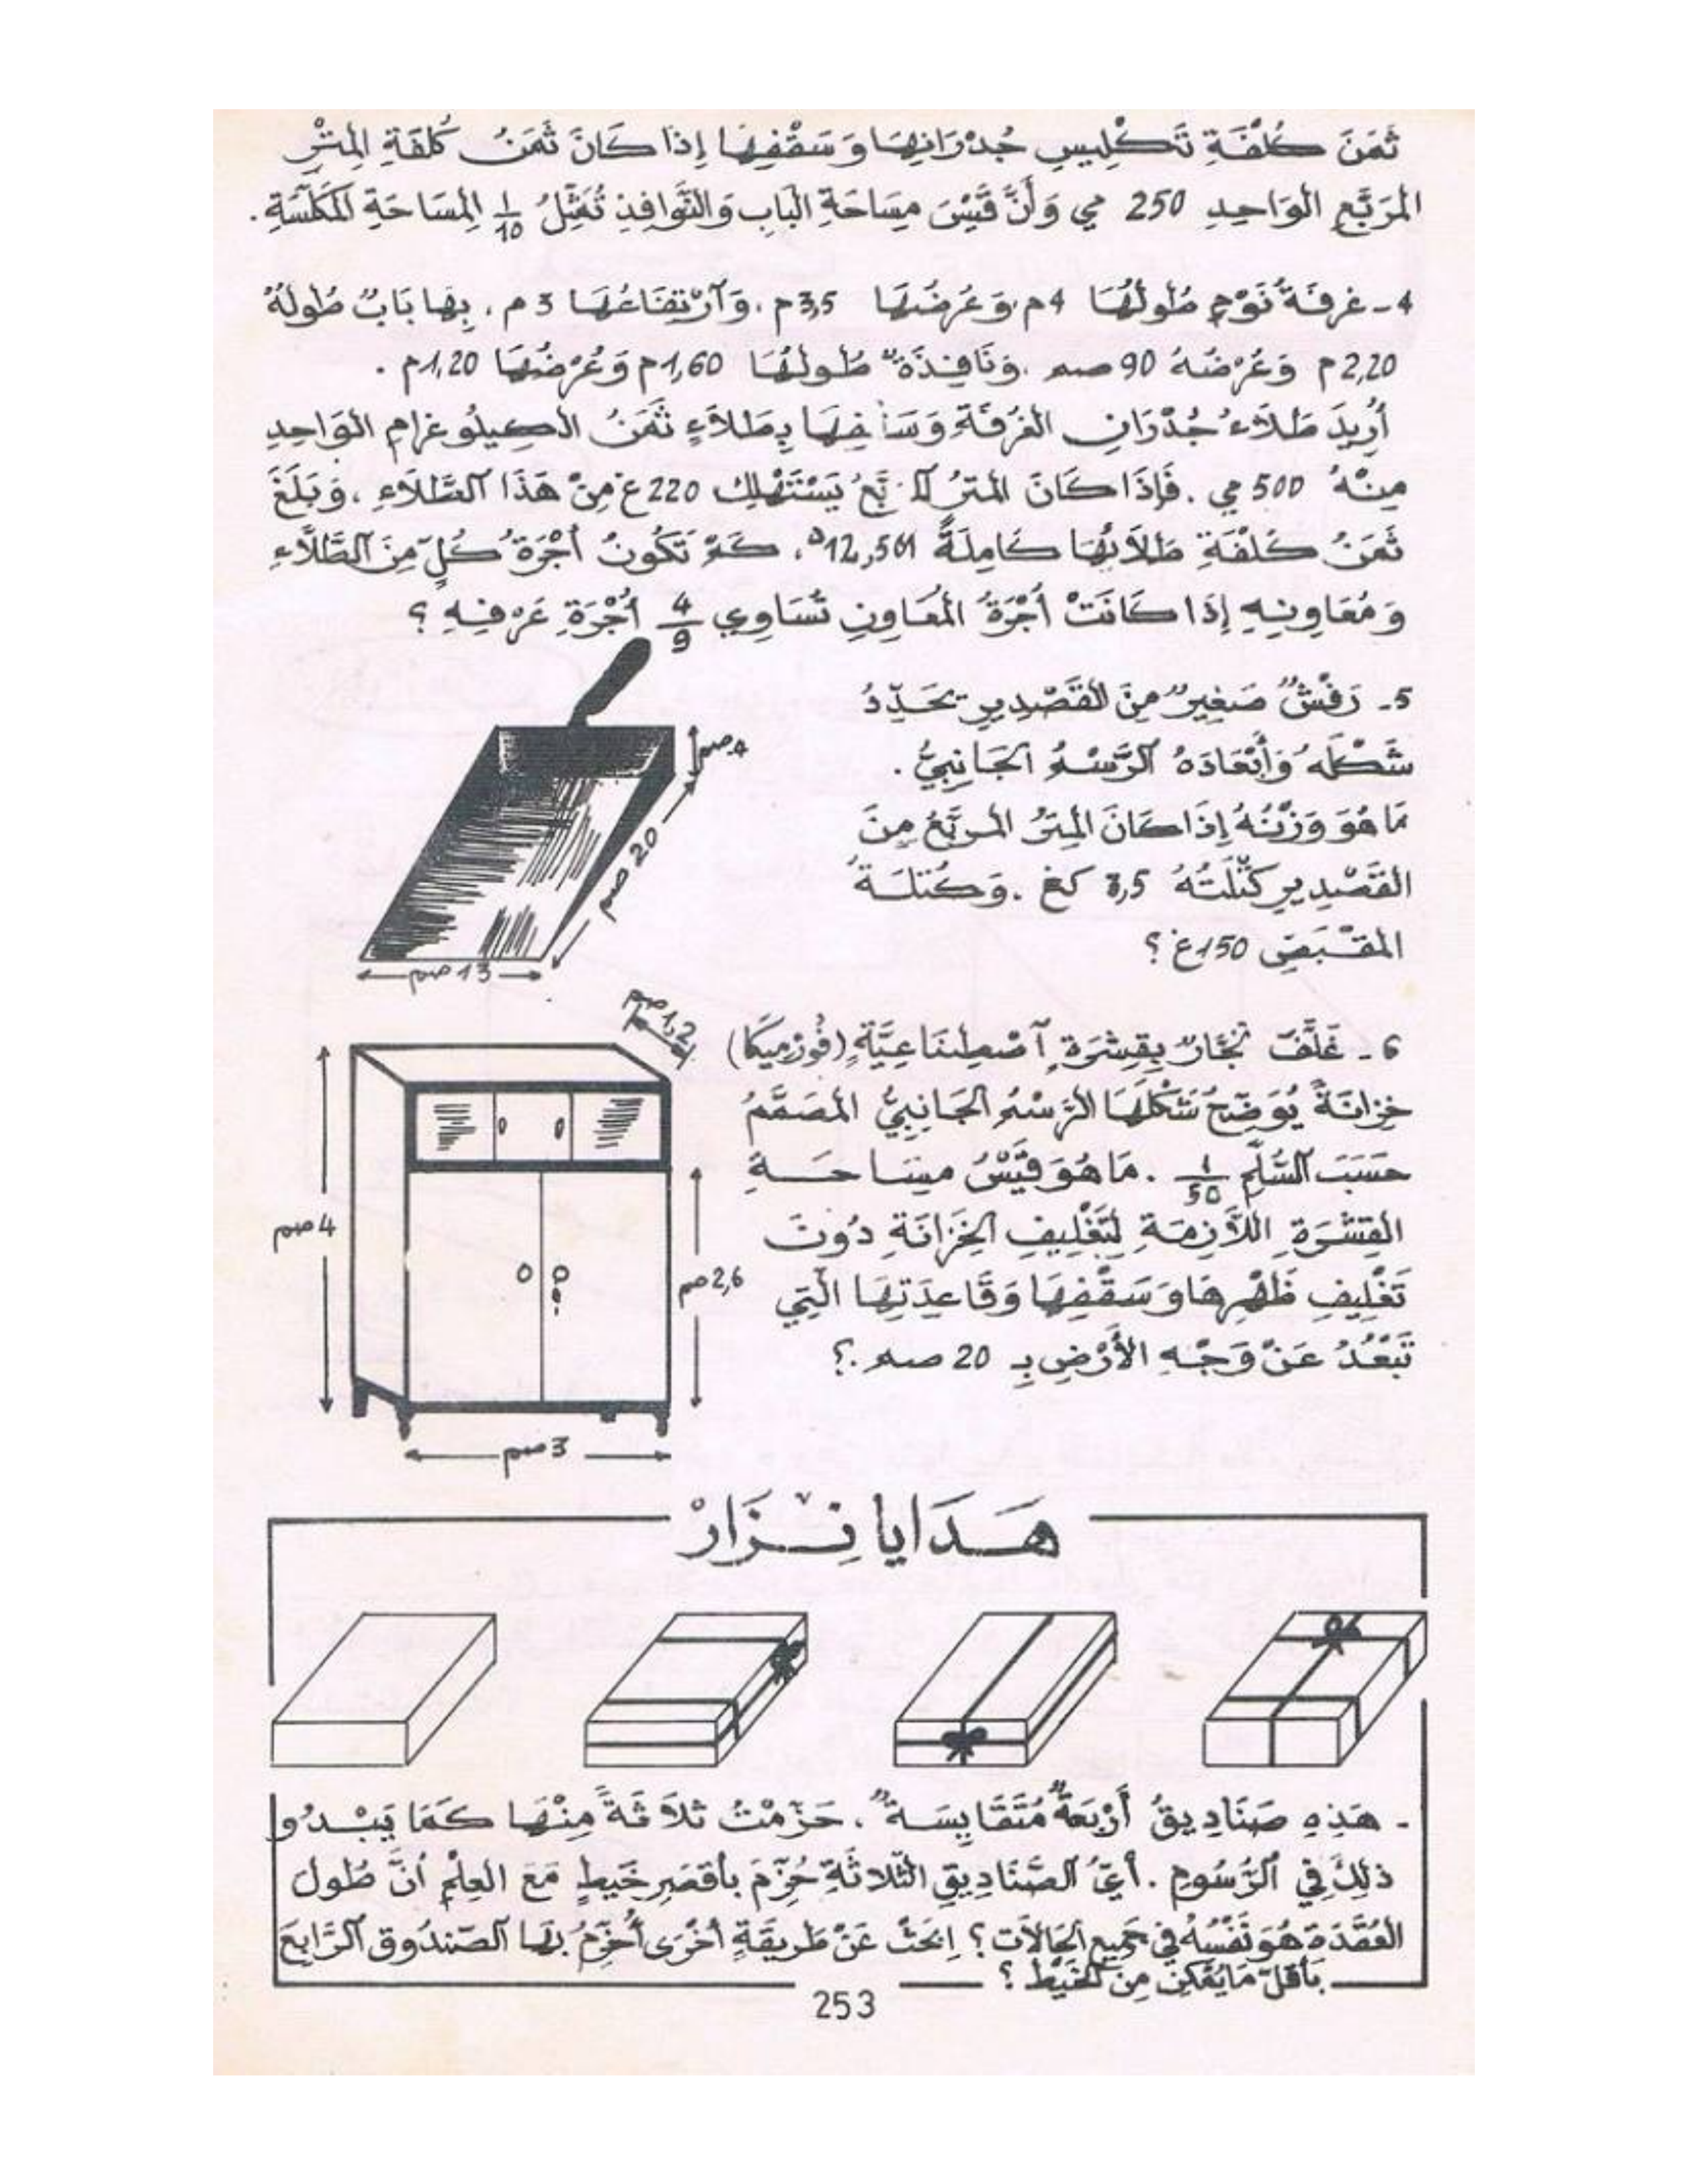 ثَمَنَ كُلْفَةِ تَكْلِيسِ جُدْرَانِهَا وَسَقْفِهَا إِذَا كَانَ ثَمَنُ كُلْفَةِ المِتْرِ
المُرَبَّعِ الوَاحِدِ 250 مي وَأَنَّ قَيْسَ مِسَاحَةِ البَابِ وَالنَّوَافِذِ تُمَثِّلُ 1/10 المِسَاحَةِ المُكَلَّسَةِ.
4 - غرفَةُ نَوْمٍ طُولُهَا 4م وَعَرْضُهَا 3,5م. وَآرْتِفَاعُهَا 3م. بِهَا بَابٌ طُولُهُ
2,20م وَعَرْضُهُ 90 صم. وَنَافِذَةٌ طُولُهَا 1,60م وَعَرْضُهَا 1,20م.
أُرِيدَ طَلَاءُ جُدْرَانِ الغُرْفَةِ وَسَقْفِهَا بِطَلَاءٍ ثَمَنُ الكِيلُوغرَامِ الوَاحِدِ
مِنْهُ 500 مي. فَإِذَا كَانَ المِتْرُ المُرَبَّعُ يَسْتَهْلِكُ 220غ مِنْ هَذَا الطَّلَاءِ، وَبَلَغَ
ثَمَنُ كُلْفَةِ طَلَائِهَا كَامِلَةً 12,561د، كَمْ تَكُونُ أُجْرَةُ كُلٍّ مِنَ الطَّلَّاءِ
وَمُعَاوِنِهِ إِذَا كَانَتْ أُجْرَةُ المُعَاوِنِ تُسَاوِي 4/9 أُجْرَةِ عَرْفِهِ؟
5 - رَفْشٌ صَغِيرٌ مِنَ القَصْدِيرِ يُحَدِّدُ
شَكْلَهُ وَأَبْعَادَهُ الرَّسْمُ الجَانِبِيُّ.
مَا هُوَ وَزْنُهُ إِذَا كَانَ المِتْرُ المُرَبَّعُ مِنَ
القَصْدِيرِ كُتْلَتُهُ 3,5 كغ. وَكُتْلَةُ
المَقْبَضِ 150غ؟
4صم
20 صم
13 صم
6 - غَلَّفَ نَجَّارٌ بِقِشْرَةٍ آصْطِنَاعِيَّةٍ (فُورْمِيكَا)
خِزَانَةً يُوَضِّحُ شَكْلَهَا الرَّسْمُ الجَانِبِيُّ المُصَمَّمُ
حَسَبَ السُّلَّمِ 1/50. مَا هُوَ قَيْسُ مِسَاحَةِ
القِشْرَةِ اللَّازِمَةِ لِتَغْلِيفِ الخِزَانَةِ دُونَ
تَغْلِيفِ ظَهْرِهَا وَسَقْفِهَا وَقَاعِدَتِهَا الَّتِي
تَبْعُدُ عَنْ وَجْهِ الأَرْضِ بِـ 20 صم.؟
1,2 صم
4 صم
2,6 صم
3 صم
هَدَايا نِزَارْ
- هَذِهِ صَنَادِيقُ أَرْبَعَةٌ مُتَقَايِسَةٌ، حَزَّمْتُ ثَلَاثَةً مِنْهَا كَمَا يَبْدُو
ذَلِكَ فِي الرُّسُومِ. أَيُّ الصَّنَادِيقِ الثَّلَاثَةِ حُزِّمَ بِأَقْصَرِ خَيْطٍ مَعَ العِلْمِ أَنَّ طُولَ
العُقْدَةِ هُوَ نَفْسُهُ فِي جَمِيعِ الحَالَاتِ؟ اِبْحَثْ عَنْ طَرِيقَةٍ أُخْرَى أُحَزِّمُ بِهَا الصُّنْدُوقَ الرَّابِعَ
بِأَقَلِّ مَا يُمْكِنُ مِنَ الخَيْطِ؟
253